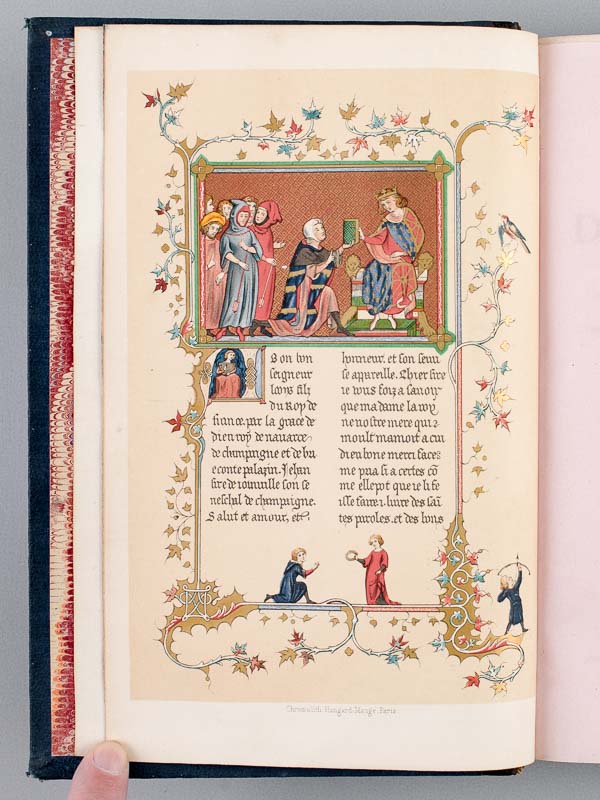 A son bon
seigneur
looys filz
du Roy de
france. par la grace de
dieu roy de nauarre
de champaigne et de bri
e conte palazin. Jehan
sire de ioinuille son se
neschal de champaigne.
Salut et amour, et
honneur. et son serui
se appareille. Chier sire
ie vous foiz a sauoir
que ma dame la roy
ne vostre mere qui
moult mamoit a cui
dieu bone merci face
me pria si a certes co
me elle pot que ie li fe
isse faire .i. liure des sai
tes paroles. et des bons
Chromolith. Hangard-Maugé, Paris